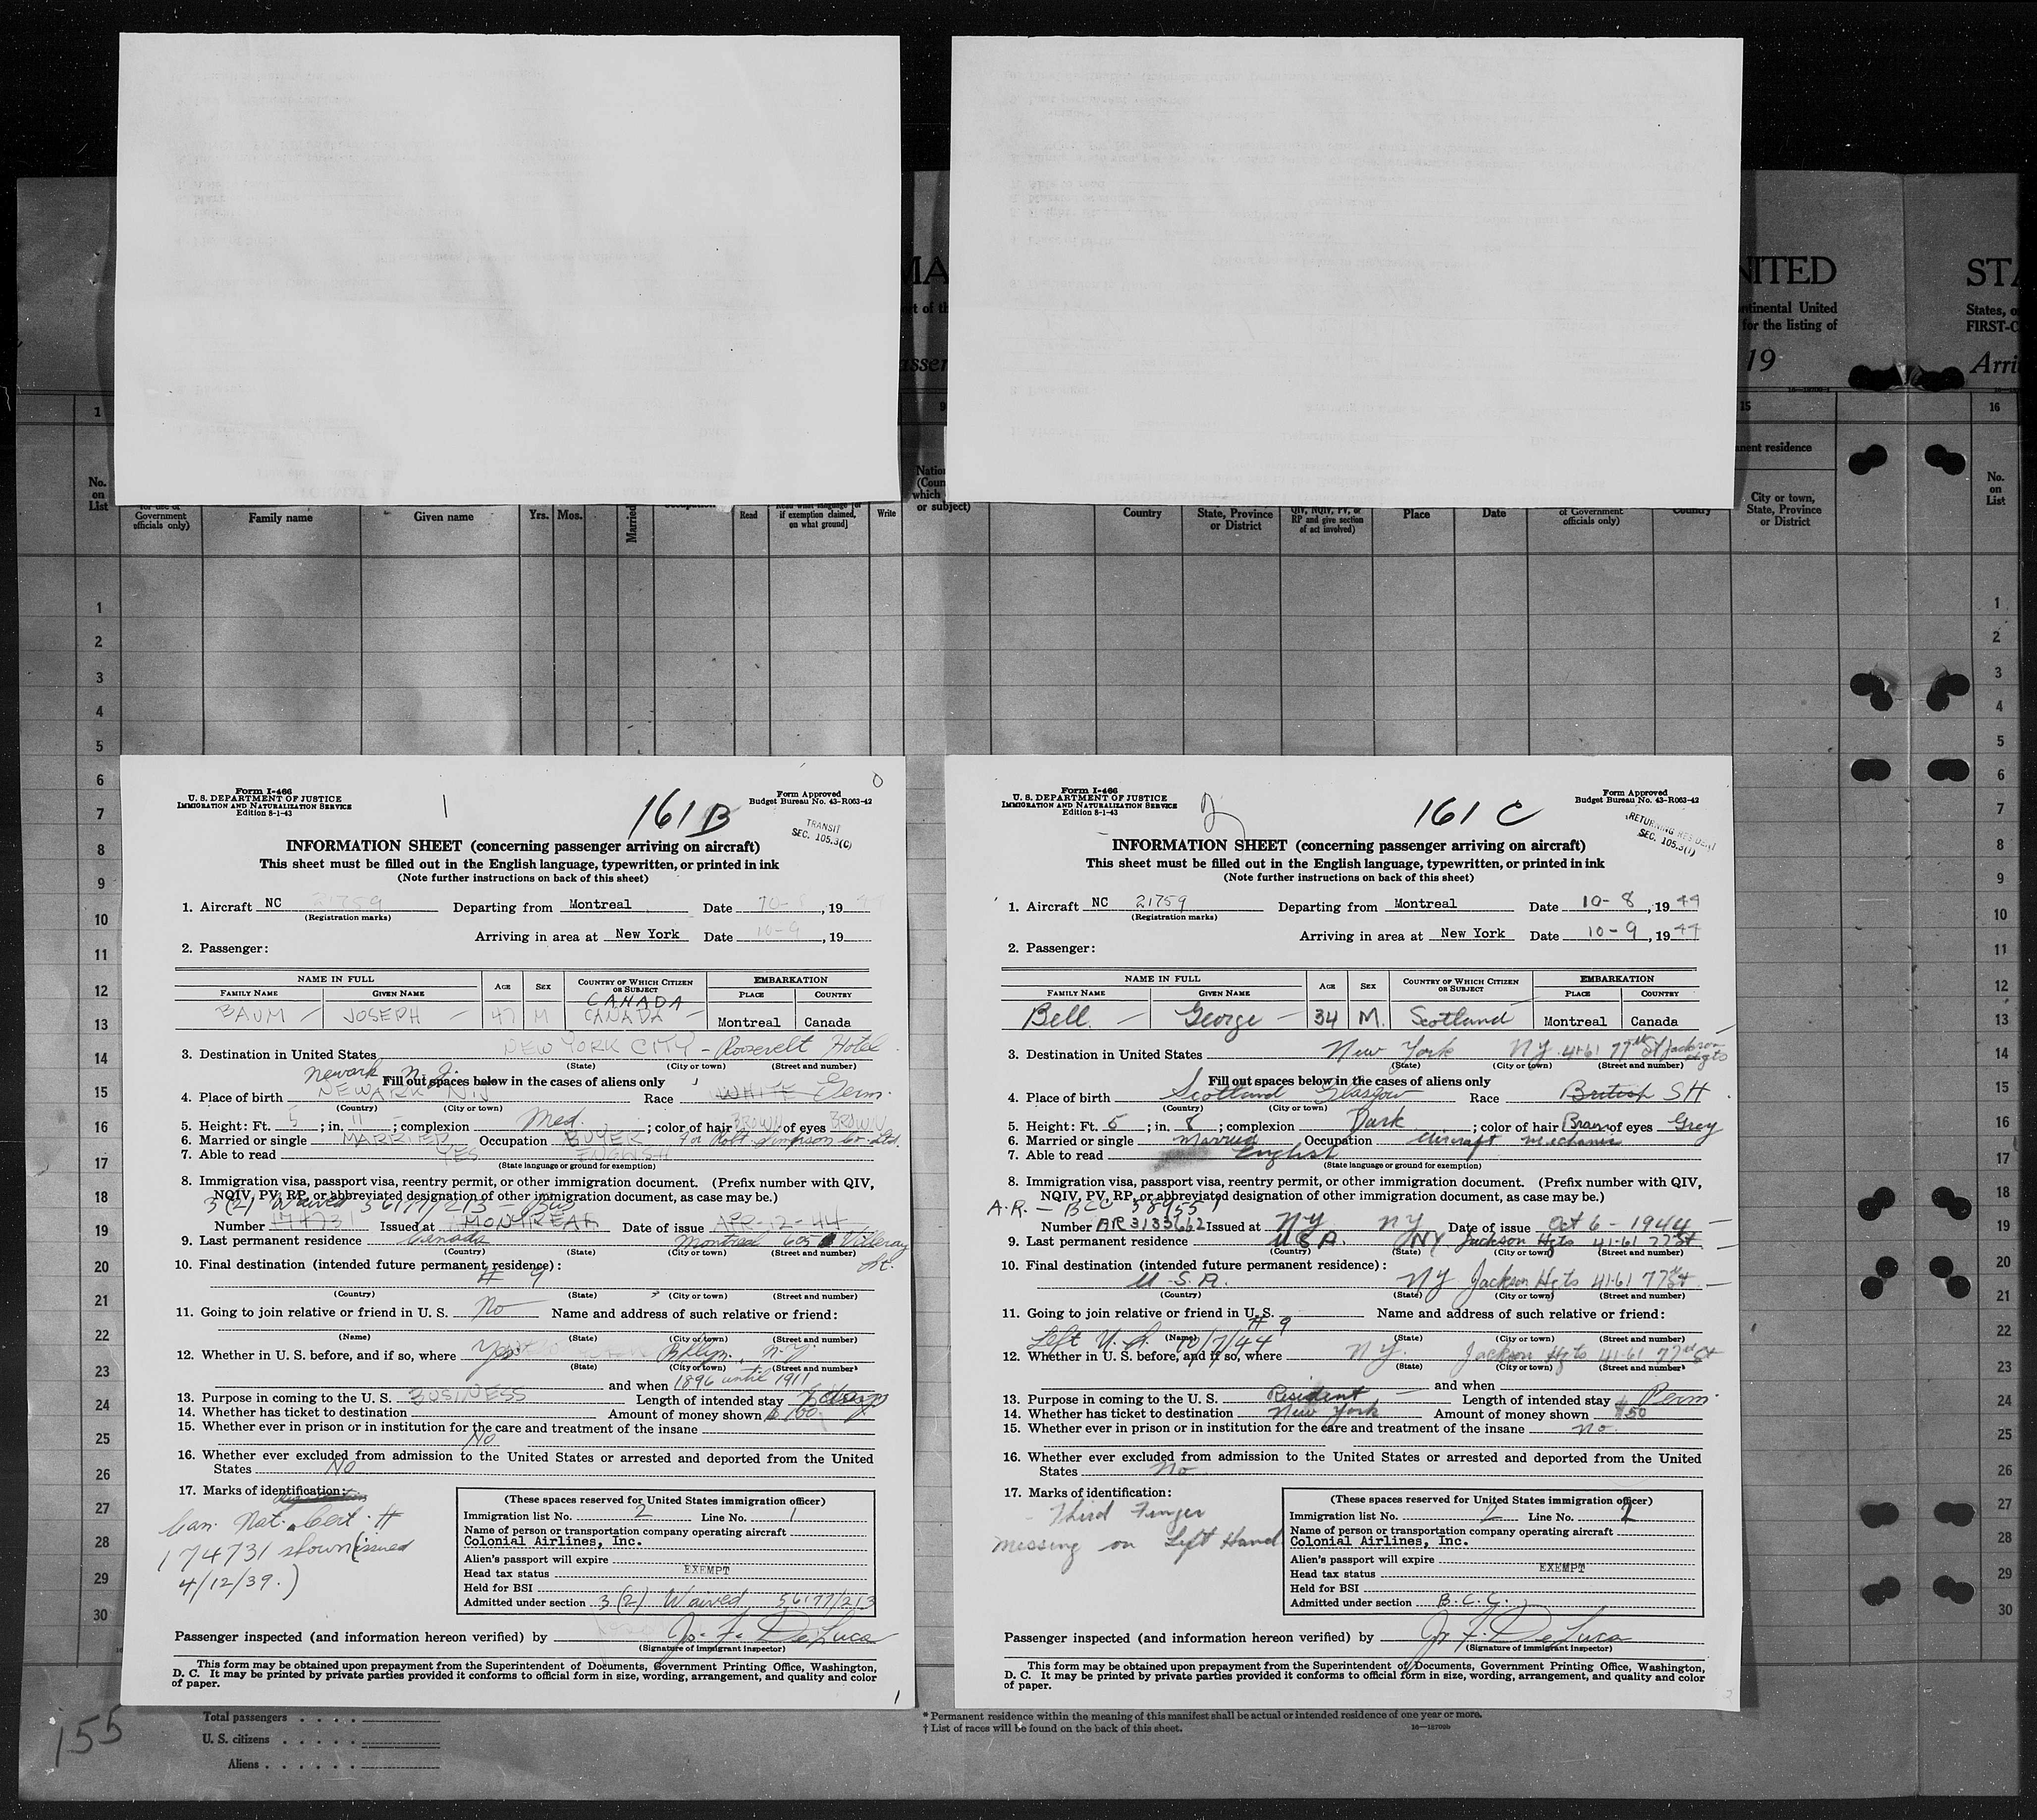 MA
NITED
STA
rt of th
ntinental United
for the listing of
States, o
FIRST-C
asser
19
Arri
1
9
15
16
nent residence
No.
on
List
Government
officials only)
Family name
Given name
Yrs.
Mos.
Married
Read
if exemption claimed,
on what ground]
Write
Nation
(Coun
which
or subject)
Country
State, Province
or District
QIV, NQIV, PV, or
RP and give section
of act involved)
Place
Date
of Government
officials only)
Country
City or town,
State, Province
or District
No.
on
List
1
2
3
4
5
6
7
8
9
10
11
12
13
14
15
16
17
18
19
20
21
22
23
24
25
26
27
28
29
30
Form I-466
U. S. DEPARTMENT OF JUSTICE
IMMIGRATION AND NATURALIZATION SERVICE
Edition 8-1-43
1
161 B
0
Form Approved
Budget Bureau No. 43-R063-42
TRANSIT
SEC. 105.3(C)
INFORMATION SHEET (concerning passenger arriving on aircraft)
This sheet must be filled out in the English language, typewritten, or printed in ink
(Note further instructions on back of this sheet)
1. Aircraft NC 21759 Departing from Montreal Date 10-8, 19 44
(Registration marks)
Arriving in area at New York Date 10-9, 19
2. Passenger:
NAME IN FULL AGE SEX COUNTRY OF WHICH CITIZEN OR SUBJECT EMBARKATION
FAMILY NAME GIVEN NAME PLACE COUNTRY
CANADA
BAUM - JOSEPH - 47 M CANADA - Montreal Canada
3. Destination in United States NEW YORK CITY - Roosevelt Hotel
(State) (City or town) (Street and number)
Newark N.J.
Fill out spaces below in the cases of aliens only
4. Place of birth NEWARK N.J Race WHITE Germ.
(Country) (City or town)
5. Height: Ft. 5; in. 11; complexion Med.; color of hair BROWN of eyes BROWN
6. Married or single MARRIED Occupation BUYER for Robt Simpson Co. Ltd.
7. Able to read YES ENGLISH
(State language or ground for exemption)
8. Immigration visa, passport visa, reentry permit, or other immigration document. (Prefix number with QIV,
NQIV, PV, RP, or abbreviated designation of other immigration document, as case may be.)
3(2) Waived 56177/213 - Bus
Number 174731 Issued at MONTREAL Date of issue APR-12-44
9. Last permanent residence Canada Montreal 605 Villeray St.
(Country) (State) (City or town) (Street and number)
10. Final destination (intended future permanent residence):
# 9
(Country) (State) (City or town) (Street and number)
11. Going to join relative or friend in U. S. No Name and address of such relative or friend:
(Name) (State) (City or town) (Street and number)
12. Whether in U. S. before, and if so, where Yes Bklyn., N.Y.
(State) (City or town) (Street and number)
and when 1896 until 1911
13. Purpose in coming to the U. S. BUSINESS Length of intended stay days
14. Whether has ticket to destination Amount of money shown $100
15. Whether ever in prison or in institution for the care and treatment of the insane
No
16. Whether ever excluded from admission to the United States or arrested and deported from the United
States No
17. Marks of identification:
Can. Nat. Cert. #
174731 shown (issued
4/12/39.)
(These spaces reserved for United States immigration officer)
Immigration list No. 2 Line No. 1
Name of person or transportation company operating aircraft
Colonial Airlines, Inc.
Alien's passport will expire
Head tax status EXEMPT
Held for BSI
Admitted under section 3(2) Waived 56177/213
Passenger inspected (and information hereon verified) by Jos. F. DeLuca
(Signature of immigrant inspector)
This form may be obtained upon prepayment from the Superintendent of Documents, Government Printing Office, Washington,
D. C. It may be printed by private parties provided it conforms to official form in size, wording, arrangement, and quality and color
of paper.
1
Form I-466
U. S. DEPARTMENT OF JUSTICE
IMMIGRATION AND NATURALIZATION SERVICE
Edition 8-1-43
2
161 C
Form Approved
Budget Bureau No. 43-R063-42
RETURNING RESIDENT
SEC. 105.3(1)
INFORMATION SHEET (concerning passenger arriving on aircraft)
This sheet must be filled out in the English language, typewritten, or printed in ink
(Note further instructions on back of this sheet)
1. Aircraft NC 21759 Departing from Montreal Date 10-8, 19 44
(Registration marks)
Arriving in area at New York Date 10-9, 19 44
2. Passenger:
NAME IN FULL AGE SEX COUNTRY OF WHICH CITIZEN OR SUBJECT EMBARKATION
FAMILY NAME GIVEN NAME PLACE COUNTRY
Bell. - George - 34 M. Scotland Montreal Canada
3. Destination in United States New York NY 41-61 77th St Jackson Hgts
(State) (City or town) (Street and number)
Fill out spaces below in the cases of aliens only
4. Place of birth Scotland Glasgow Race British SH
(Country) (City or town)
5. Height: Ft. 5; in. 8; complexion Dark; color of hair Brown of eyes Grey
6. Married or single Married Occupation Aircraft mechanic
7. Able to read English
(State language or ground for exemption)
8. Immigration visa, passport visa, reentry permit, or other immigration document. (Prefix number with QIV,
NQIV, PV, RP, or abbreviated designation of other immigration document, as case may be.)
A.R. - BCC 58955
Number AR 3133662 Issued at NY NY Date of issue Oct 6 - 1944
9. Last permanent residence U.S.A. NY Jackson Hgts 41-61 77 St
(Country) (State) (City or town) (Street and number)
10. Final destination (intended future permanent residence):
U.S.A. NY Jackson Hgts 41-61 77 St
(Country) (State) (City or town) (Street and number)
11. Going to join relative or friend in U. S. Name and address of such relative or friend:
# 9
(Name) (State) (City or town) (Street and number)
Left U.S. 10/7/44
12. Whether in U. S. before, and if so, where N.Y. Jackson Hgts 41-61 77 St
(State) (City or town) (Street and number)
and when
13. Purpose in coming to the U. S. Resident Length of intended stay Perm.
14. Whether has ticket to destination New York Amount of money shown $50
15. Whether ever in prison or in institution for the care and treatment of the insane No.
16. Whether ever excluded from admission to the United States or arrested and deported from the United
States No
17. Marks of identification:
- Third Finger
Missing on Left Hand
(These spaces reserved for United States immigration officer)
Immigration list No. 2 Line No. 2
Name of person or transportation company operating aircraft
Colonial Airlines, Inc.
Alien's passport will expire
Head tax status EXEMPT
Held for BSI
Admitted under section B.C.C.
Passenger inspected (and information hereon verified) by Jos. F. DeLuca
(Signature of immigrant inspector)
This form may be obtained upon prepayment from the Superintendent of Documents, Government Printing Office, Washington,
D. C. It may be printed by private parties provided it conforms to official form in size, wording, arrangement, and quality and color
of paper.
2
1
2
3
4
5
6
7
8
9
10
11
12
13
14
15
16
17
18
19
20
21
22
23
24
25
26
27
28
29
30
155
Total passengers . . . .
U. S. citizens . . . . .
Aliens . . . . . .
* Permanent residence within the meaning of this manifest shall be actual or intended residence of one year or more.
† List of races will be found on the back of this sheet.
16—18700b